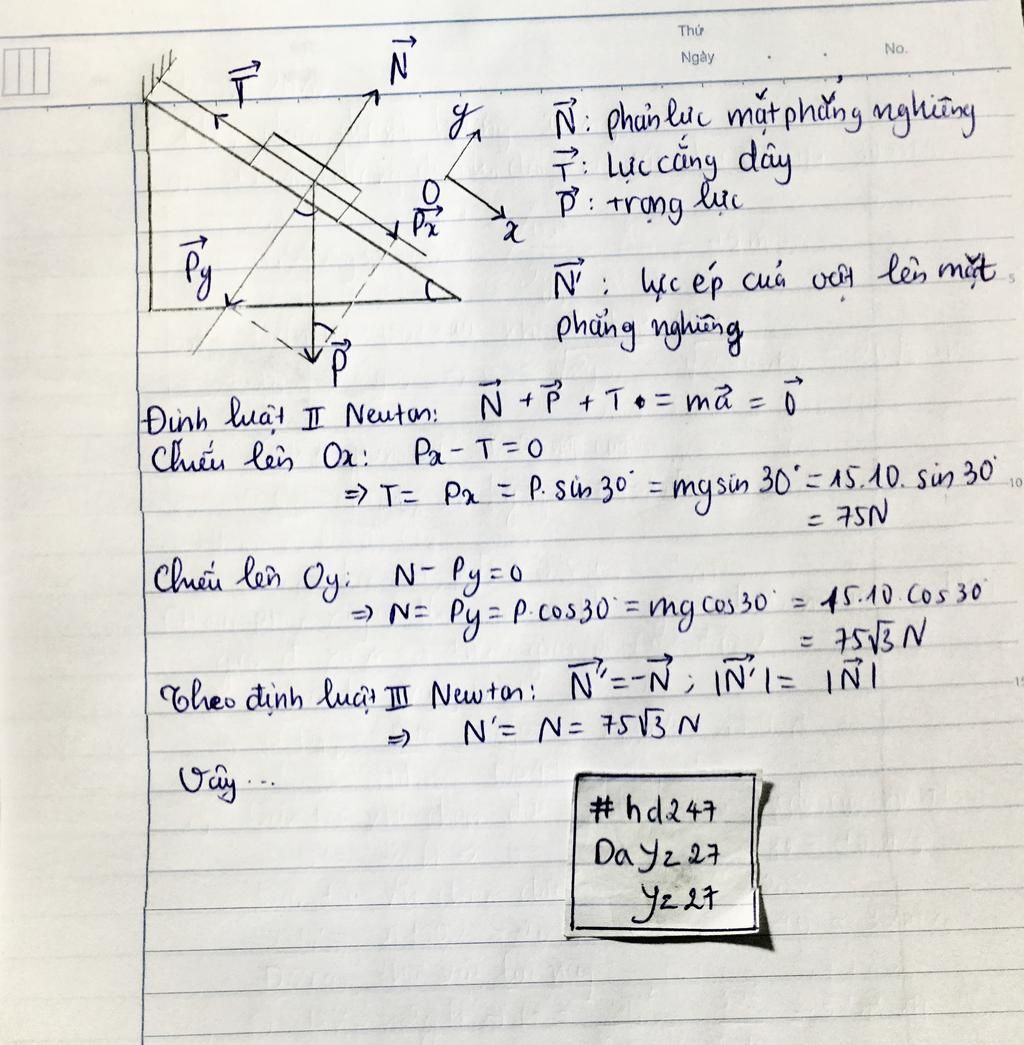 Thứ
Ngày . . No.
T⃗
N⃗
y
O
x
P⃗x
P⃗y
P⃗
N⃗: phản lực mặt phẳng nghiêng
T⃗: lực căng dây
P⃗: trọng lực
N⃗': lực ép của vật lên mặt
phẳng nghiêng
5
Định luật II Newton: N⃗ + P⃗ + T = ma⃗ = 0⃗
Chiếu lên Ox: Px - T = 0
=> T = Px = P. sin 30° = mg sin 30° = 15.10. sin 30°
10
= 75N
Chiếu lên Oy: N - Py = 0
=> N = Py = P. cos 30° = mg cos 30° = 15.10. cos 30°
= 75√3 N
Theo định luật III Newton: N⃗' = -N⃗; |N⃗'| = |N⃗|
=> N' = N = 75√3 N
Vậy ...
#hd247
DaYz27
Yz27